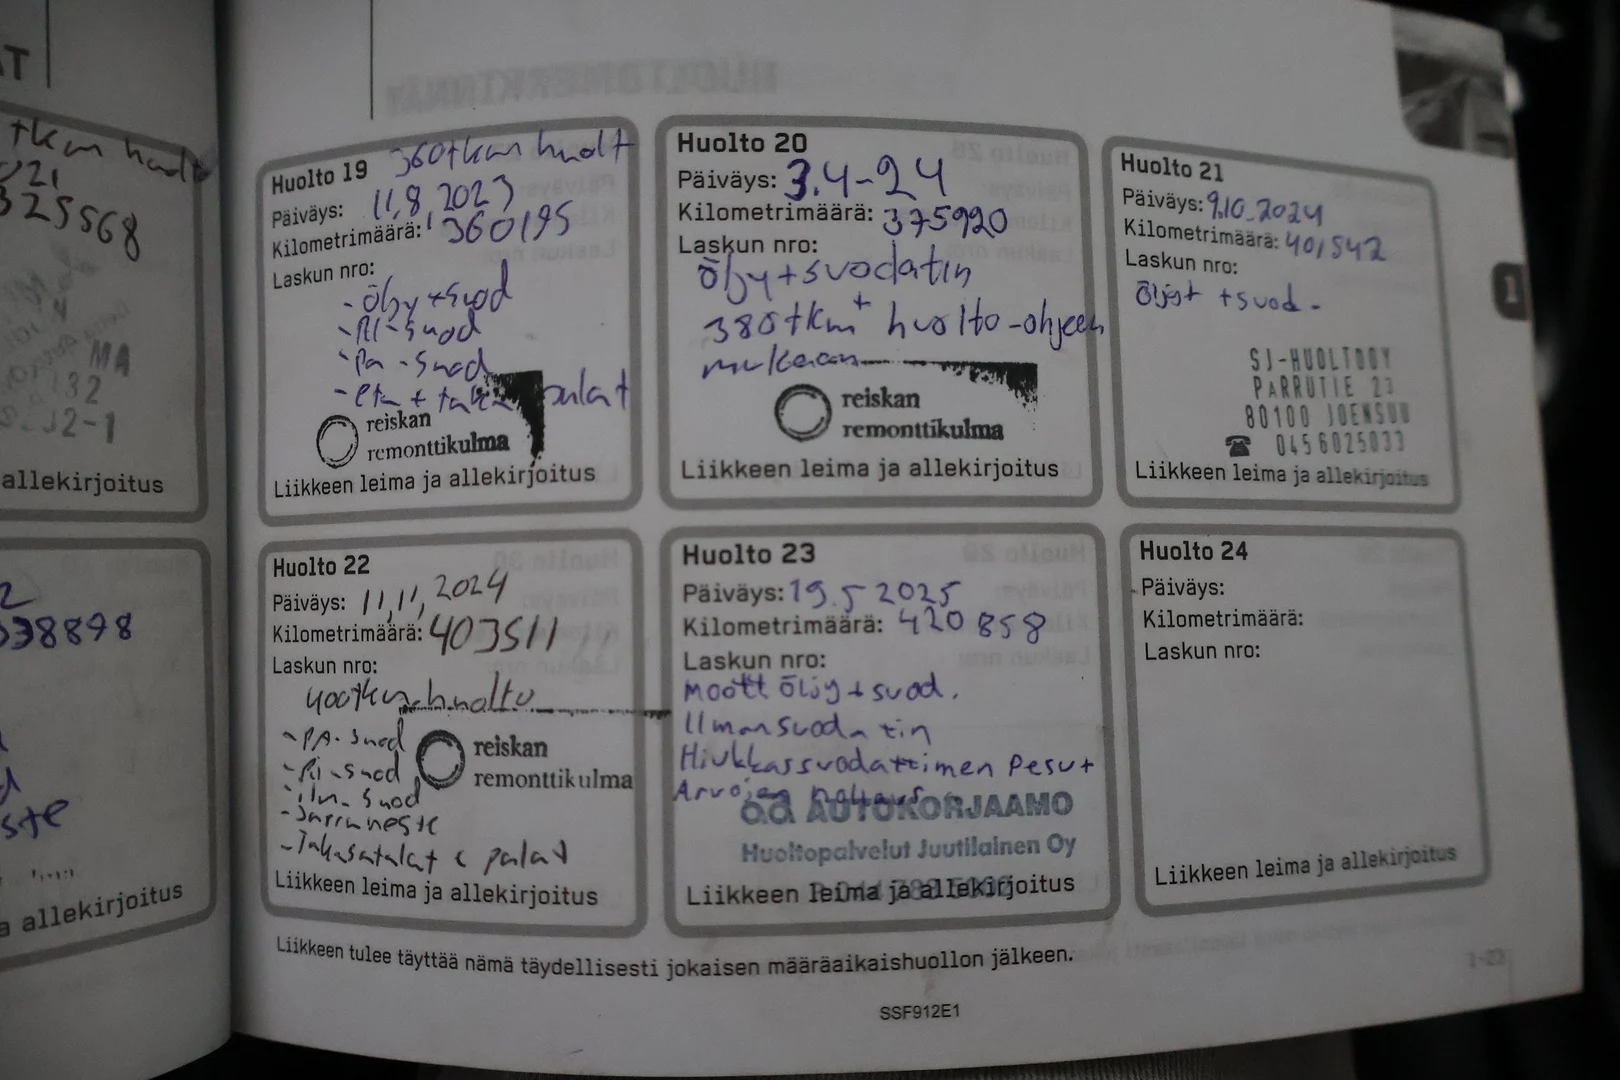 AT
tkm huolto
325568
MA
132
J2-1
allekirjoitus
338898
ste
a allekirjoitus
Huolto 19 360tkm huolt
Päiväys: 11.8.2023
Kilometrimäärä: 360195
Laskun nro:
- öljy + suod
- Pl-suod
- Pa-suod
- etu + taka palat
reiskan
remonttikulma
Liikkeen leima ja allekirjoitus
Huolto 20
Päiväys: 3.4-24
Kilometrimäärä: 375920
Laskun nro:
Öljy + svodatin
380tkm huolto-ohjeen
mukaan
reiskan
remonttikulma
Liikkeen leima ja allekirjoitus
Huolto 21
Päiväys: 9.10.2024
Kilometrimäärä: 401542
Laskun nro:
Öljyt + suod-
SJ-HUOLTOOY
PARRUTIE 23
80100 JOENSUU
☎ 0456025033
Liikkeen leima ja allekirjoitus
Huolto 22
Päiväys: 11,11, 2024
Kilometrimäärä: 403511
Laskun nro:
400tkm huolto
- PA-suod
- Pl-suod
- ilm-suod
- Jarruneste
- Takasatalat & palat
reiskan
remonttikulma
Liikkeen leima ja allekirjoitus
Huolto 23
Päiväys: 19.5 2025
Kilometrimäärä: 420858
Laskun nro:
Moott Öljy + suod.
Ilmansuodatin
Hiukkassuodattimen Pesu +
Arvojen nollaus
ad AUTOKORJAAMO
Huoltopalvelut Juutilainen Oy
Liikkeen leima ja allekirjoitus
Huolto 24
Päiväys:
Kilometrimäärä:
Laskun nro:
Liikkeen leima ja allekirjoitus
1
Liikkeen tulee täyttää nämä täydellisesti jokaisen määräaikaishuollon jälkeen.
1-23
SSF912E1